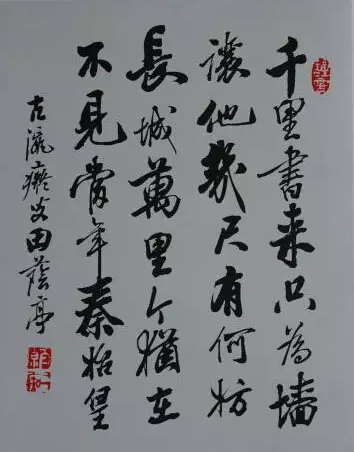 千里書来只為墙
讓他幾尺有何妨
長城萬里今猶在
不見當年秦始皇
古瀛田蔭亭